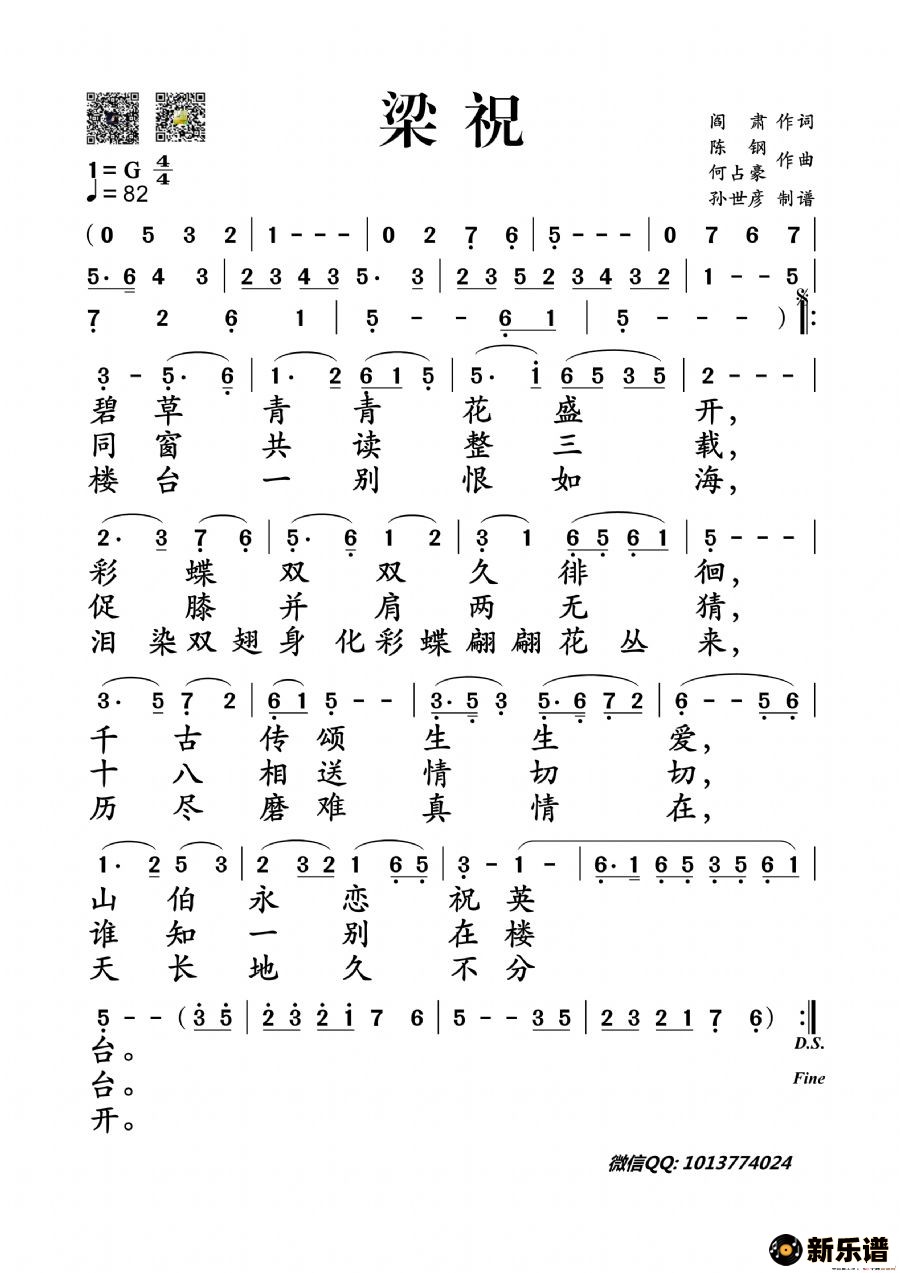 梁祝
阎 肃 作词
陈 钢
何占豪 作曲
孙世彦 制谱
1=G 4/4
♩=82
(0 5 3 2 | 1 - - - | 0 2 7 6 | 5 - - - | 0 7 6 7 |
5· 6 4 3 | 2 3 4 3 5· 3 | 2 3 5 2 3 4 3 2 | 1 - - 5 |
7 2 6 1 | 5 - - 6 1 | 5 - - - ) 𝄋 ‖:
3 - 5· 6 | 1· 2 6 1 5 | 5· i 6 5 3 5 | 2 - - - |
碧草青青花盛开,
同窗共读整三载,
楼台一别恨如海,
2· 3 7 6 | 5· 6 1 2 | 3 1 6 5 6 1 | 5 - - - |
彩蝶双双久徘徊,
促膝并肩两无猜,
泪染双翅身化彩蝶翩翩花丛来,
3· 5 7 2 | 6 1 5 - - | 3· 5 3 5· 6 7 2 | 6 - - 5 6 |
千古传颂生生爱,
十八相送情切切,
历尽磨难真情在,
1· 2 5 3 | 2 3 2 1 6 5 | 3 - 1 - | 6· 1 6 5 3 5 6 1 |
山伯永恋祝英
谁知一别在楼
天长地久不分
5 - - (3 5 | 2 3 2 1 7 6 | 5 - - 3 5 | 2 3 2 1 7 6) :‖
台。
D.S.
台。
Fine
开。
微信QQ: 1013774024
新乐谱